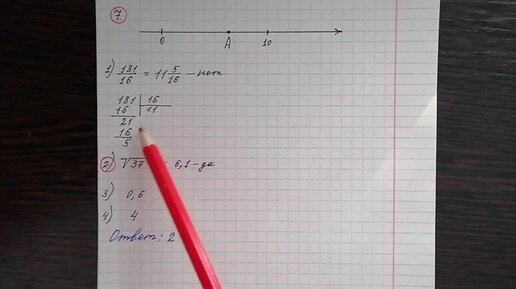 7.
0 A 10
1) 181/16 = 11 5/16 - нет.
181 | 16
16 | 11
21
16
5
2) √37 6,1 - да
3) 0,6
4) 4
Ответ: 2